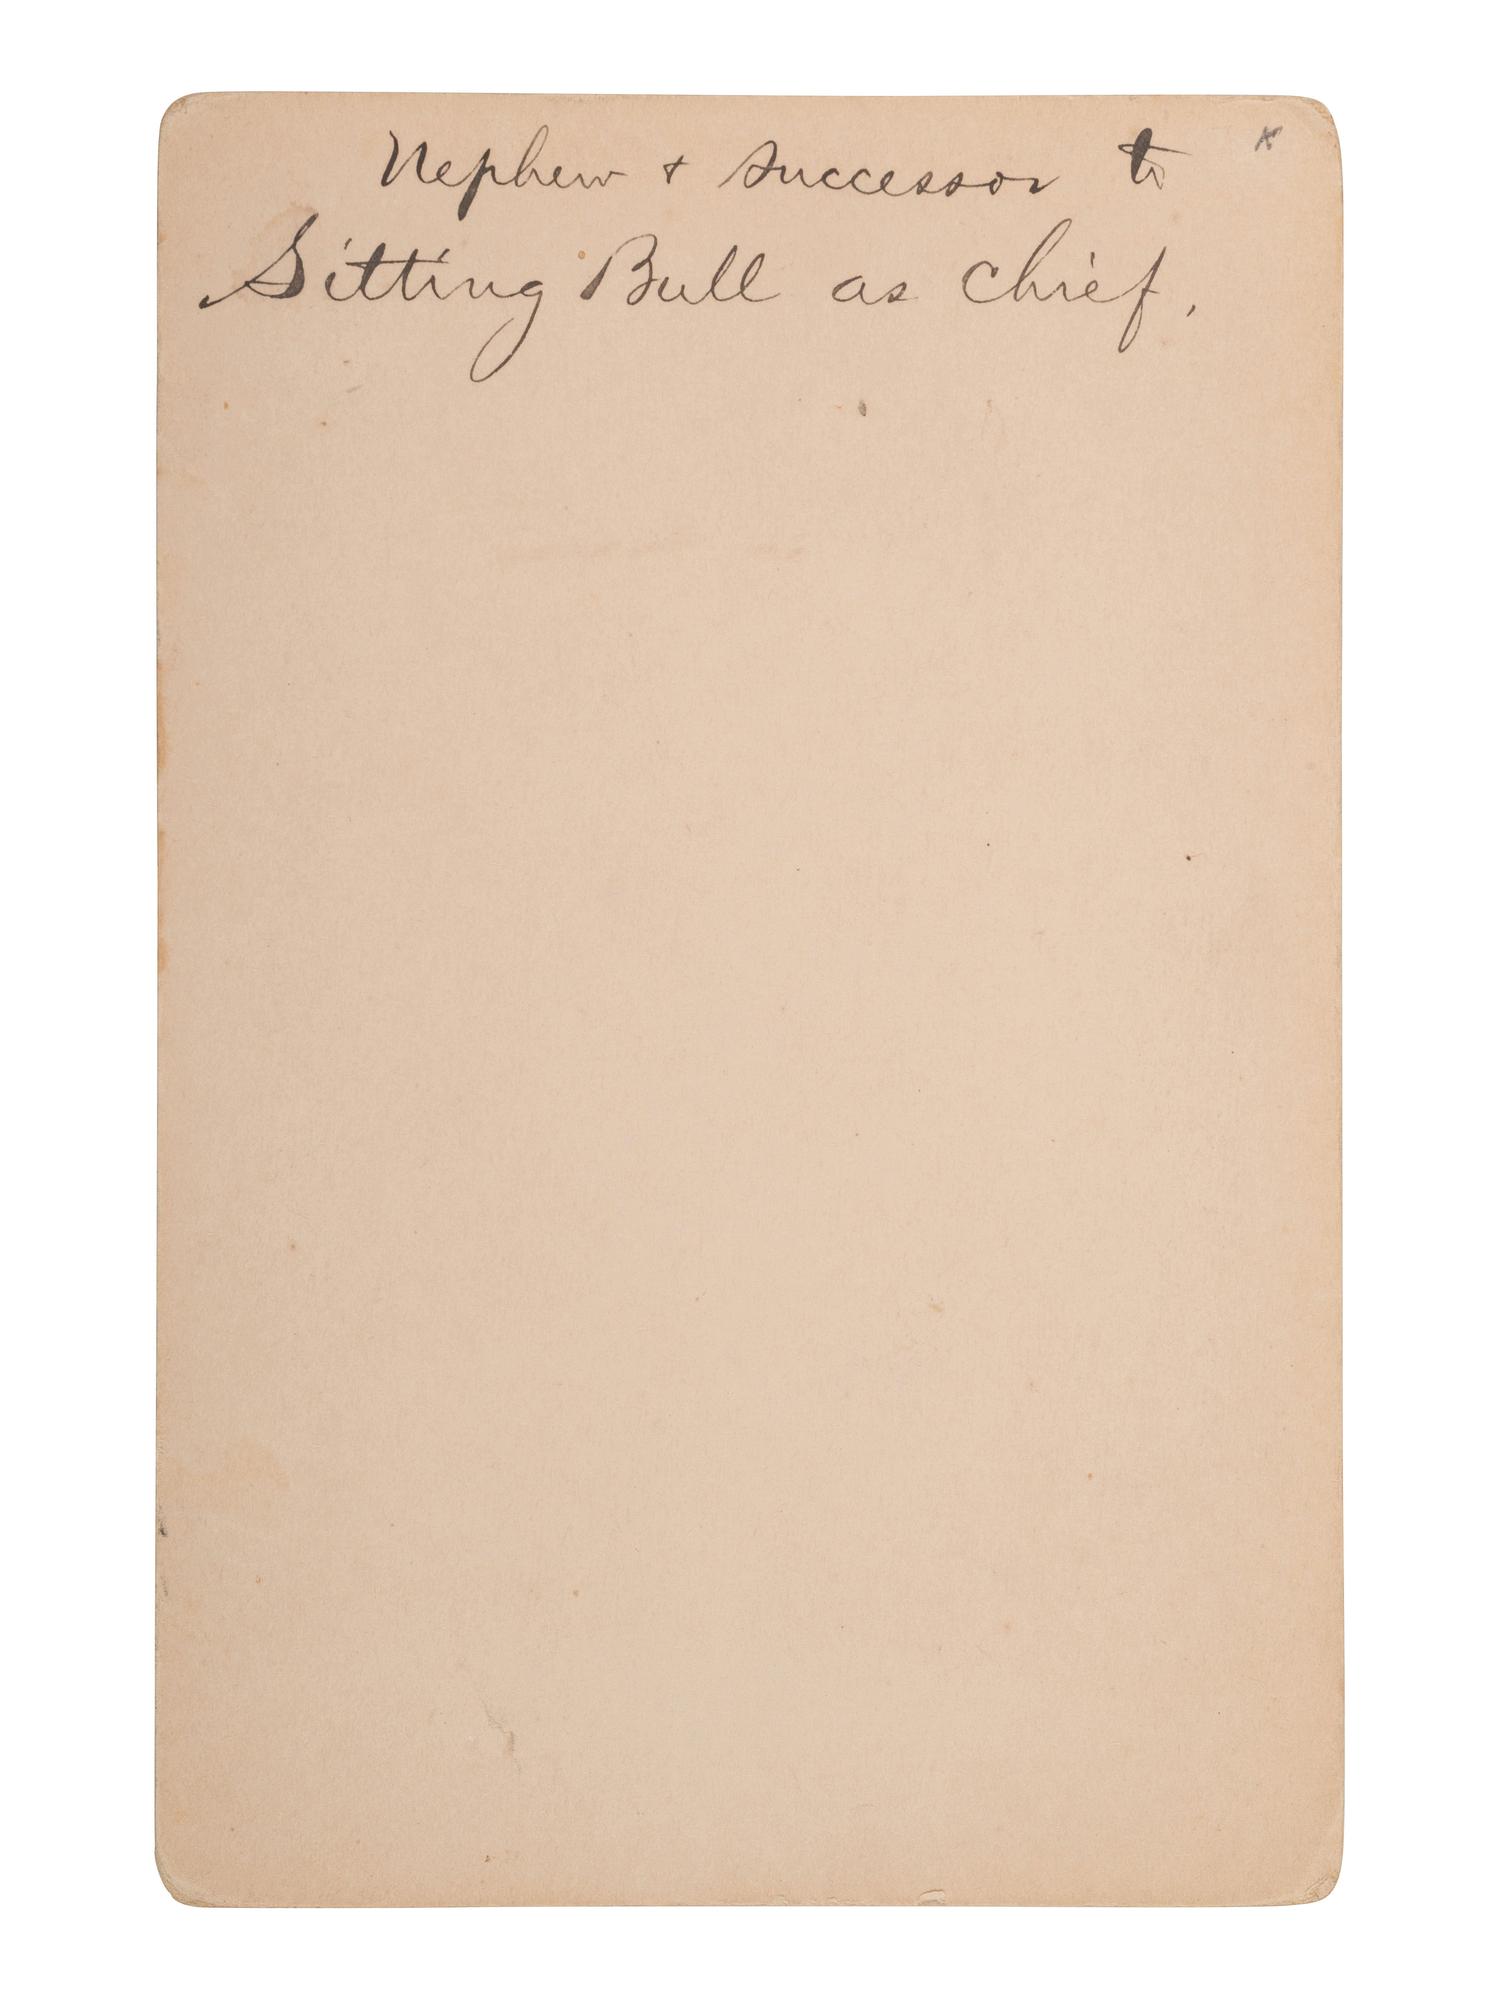 Nephew + successor to x
Sitting Bull as chief.